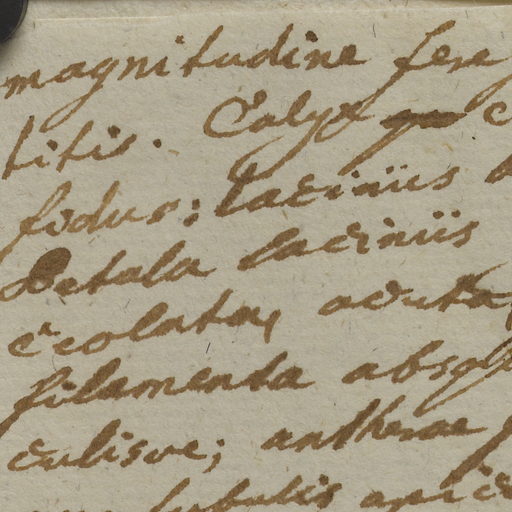 magnitudine fere
titis. Calyx
fidus: laciniis
Petala laciniis
ceolata, acuta,
filamenta absq
culisve; antherae
tubulis apic